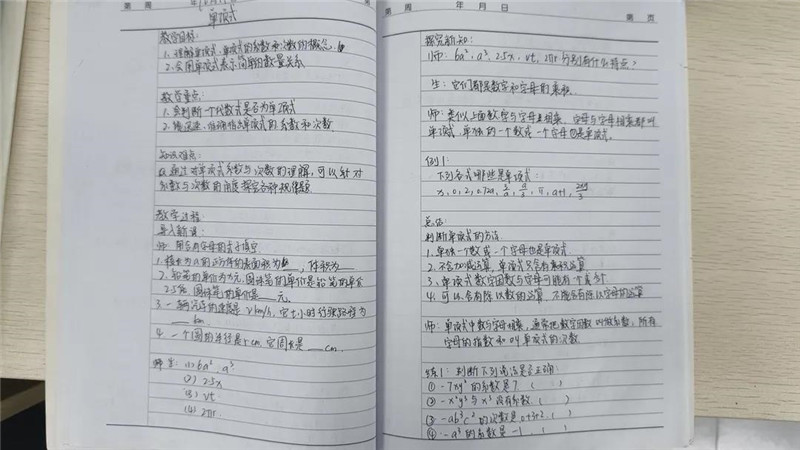 第 周 年 月 日
单项式
教学目标:
1、理解单项式、单项式的系数和次数的概念.
2、会用单项式表示简单的数量关系
教学重点:
1、会判断一个代数式是否为单项式
2、准确指出单项式的系数和次数
知识难点:
通过对单项式系数与次数的理解,可以针对
系数与次数的角度探究各种规律题
教学过程:
导入新课:
师: 用含有字母的式子填空
1、棱长为a的正方体的表面积为 , 体积为
2、铅笔的单价为x元,圆珠笔的单价是铅笔的单价
2.5倍,圆珠笔的单价是 元.
3、一辆汽车的速度是 v km/h, 它t小时行驶路程为
km
4、一个圆的半径是r cm, 它周长是 cm.
生: (1) 6a² a³
(2) 2.5x
(3) vt
(4) 2πr
第 周 年 月 日 第 页
探究新知:
师: 6a², a³, 2.5x, vt, 2πr 分别有什么特点?
生: 它们都是数字和字母的乘积.
师: 类似上面数字与字母相乘、字母与字母相乘都叫
单项式, 单独的一个数或一个字母也是单项式.
例1:
下列各式哪些是单项式:
x, 0, 2, 0.72a, 3/a, a/3, π, a+1, 2xy/3
总结:
判断单项式的方法
1、单独一个数或一个字母也是单项式
2、不含加减运算, 单项式只含有乘积运算
3、单项式数字因数与字母可能有个
4、可以含有除以数的运算, 不能含有除以字母的运算
师: 单项式中数与字母相乘, 通常把数字因数叫做系数, 所有
字母的指数和叫单项式的次数
练1: 判断下列说法是否正确:
① -7xy²的系数是7 ( )
② -x²y³与x³没有系数 ( )
③ -ab³c²的次数是0+3+2 ( )
④ -a³的系数是-1 ( )